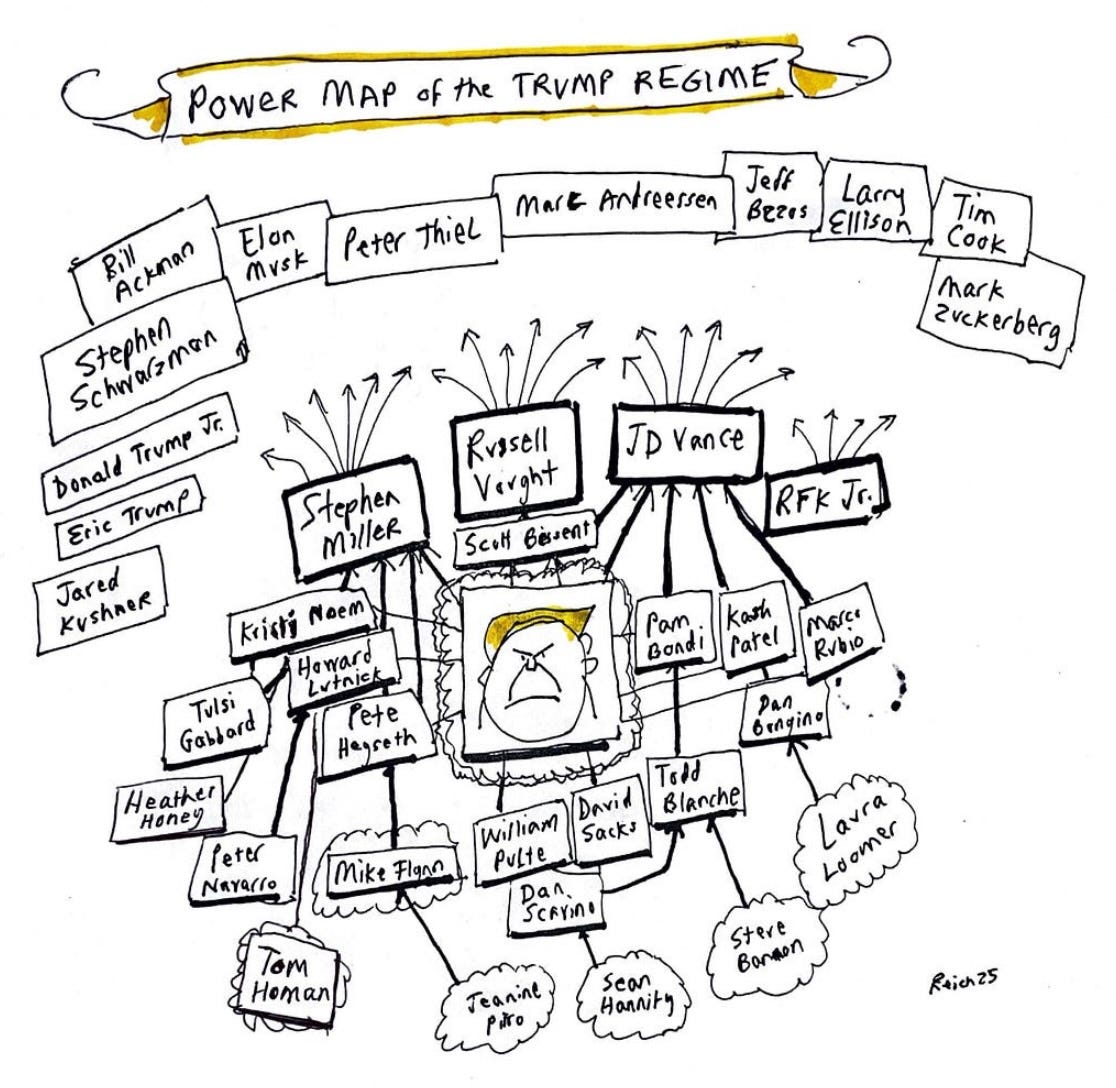 POWER MAP of the TRUMP REGIME
Bill
Ackman
Elon
Musk
Peter Thiel
Marc Andreessen
Jeff
Bezos
Larry
Ellison
Tim
Cook
Mark
Zuckerberg
Stephen
Schwarzman
Donald Trump Jr.
Eric Trump
Jared
Kushner
Stephen
Miller
Russell
Vought
JD Vance
RFK Jr.
Scott Bessent
Kristi Noem
Howard
Lutnick
Pete
Hegseth
Tulsi
Gabbard
Heather
Honey
Peter
Navarro
Tom
Homan
Mike Flynn
Jeanine
Pirro
Pam
Bondi
Kash
Patel
Marco
Rubio
Dan
Bongino
Todd
Blanche
William
Pulte
David
Sacks
Dan
Scavino
Sean
Hannity
Steve
Bannon
Laura
Loomer
Reich 25